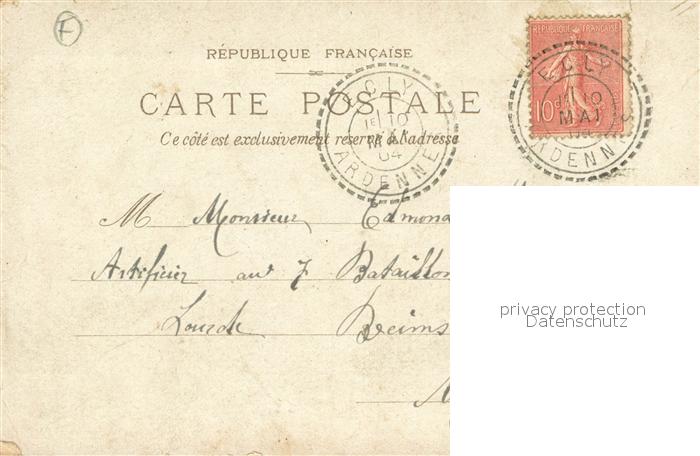 F
RÉPUBLIQUE FRANÇAISE
RÉPUBLIQUE FRANÇAISE
CARTE POSTALE
Ce côté est exclusivement réservé à l'adresse
ECLY
1E 10
MAI
04
ARDENNE
10c
ECLY
10
MAI
ARDENNES
M Monsieur Edmond
Artificier au 7 Bataillon
Reims
privacy protection
Datenschutz